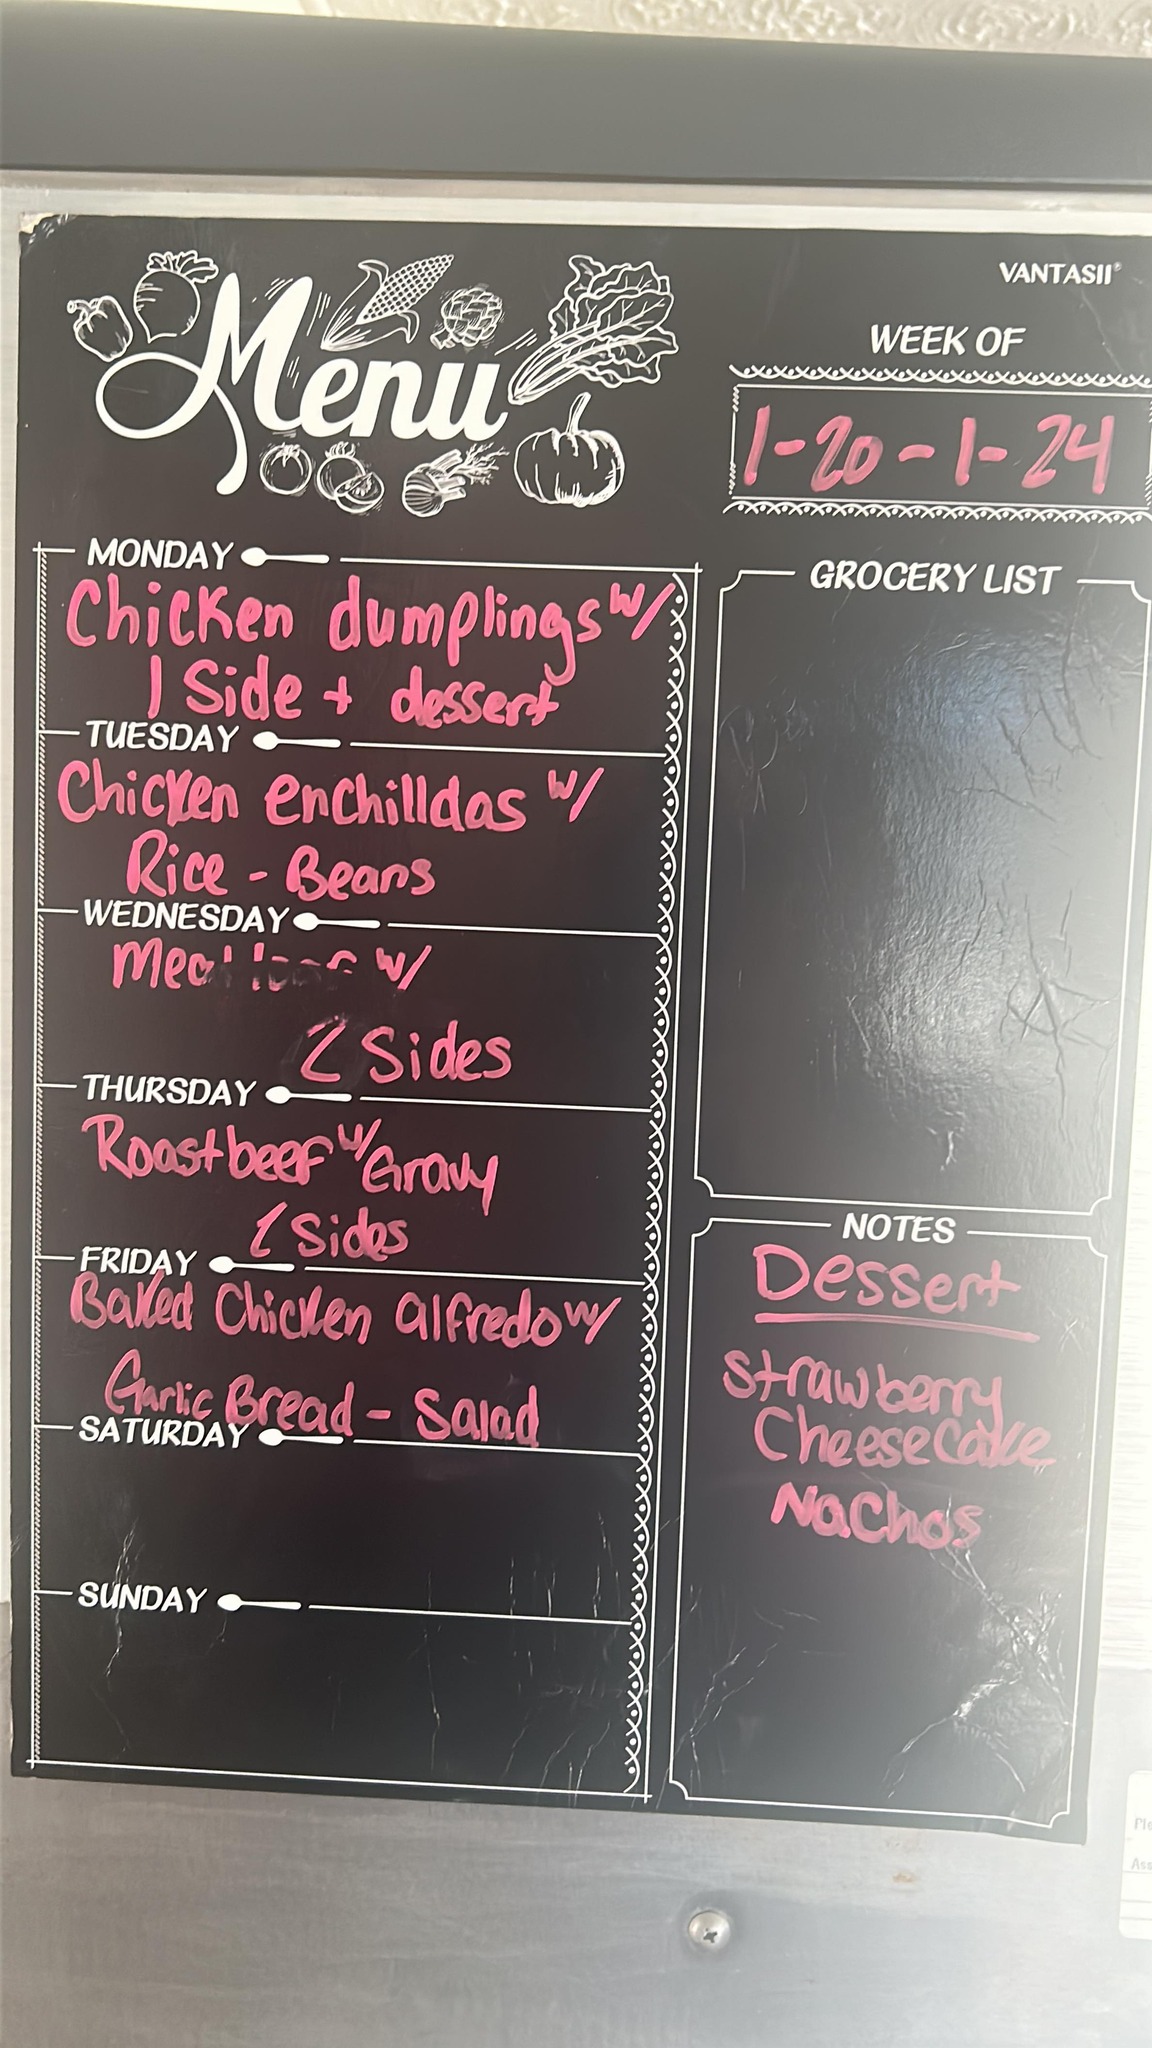 Menu
VANTASII®
WEEK OF
1-20-1-24
MONDAY
Chicken dumplings w/
1 Side + dessert
TUESDAY
Chicken enchilldas w/
Rice - Beans
WEDNESDAY
w/
2 Sides
THURSDAY
Roastbeef w/ Gravy
2 Sides
FRIDAY
Baked Chicken alfredo w/
Garlic Bread - Salad
SATURDAY
SUNDAY
GROCERY LIST
NOTES
Dessert
Strawberry
Cheesecake
Nachos